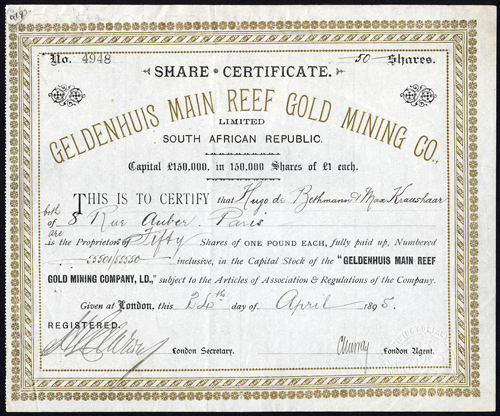 No. 4948
50 Shares.
SHARE CERTIFICATE.
GELDENHUIS MAIN REEF GOLD MINING CO.,
LIMITED
SOUTH AFRICAN REPUBLIC.
Capital £150,000, in 150,000 Shares of £1 each.
THIS IS TO CERTIFY that Hugo de Bethmann & Max Kraushaar
both of 8 Rue Auber Paris
are
is the Proprietors of Fifty Shares of ONE POUND EACH, fully paid up, Numbered
55501/55550 inclusive, in the Capital Stock of the "GELDENHUIS MAIN REEF
GOLD MINING COMPANY, LD.," subject to the Articles of Association & Regulations of the Company.
Given at London, this 24th day of April 1895.
REGISTERED.
London Secretary.
London Agent.